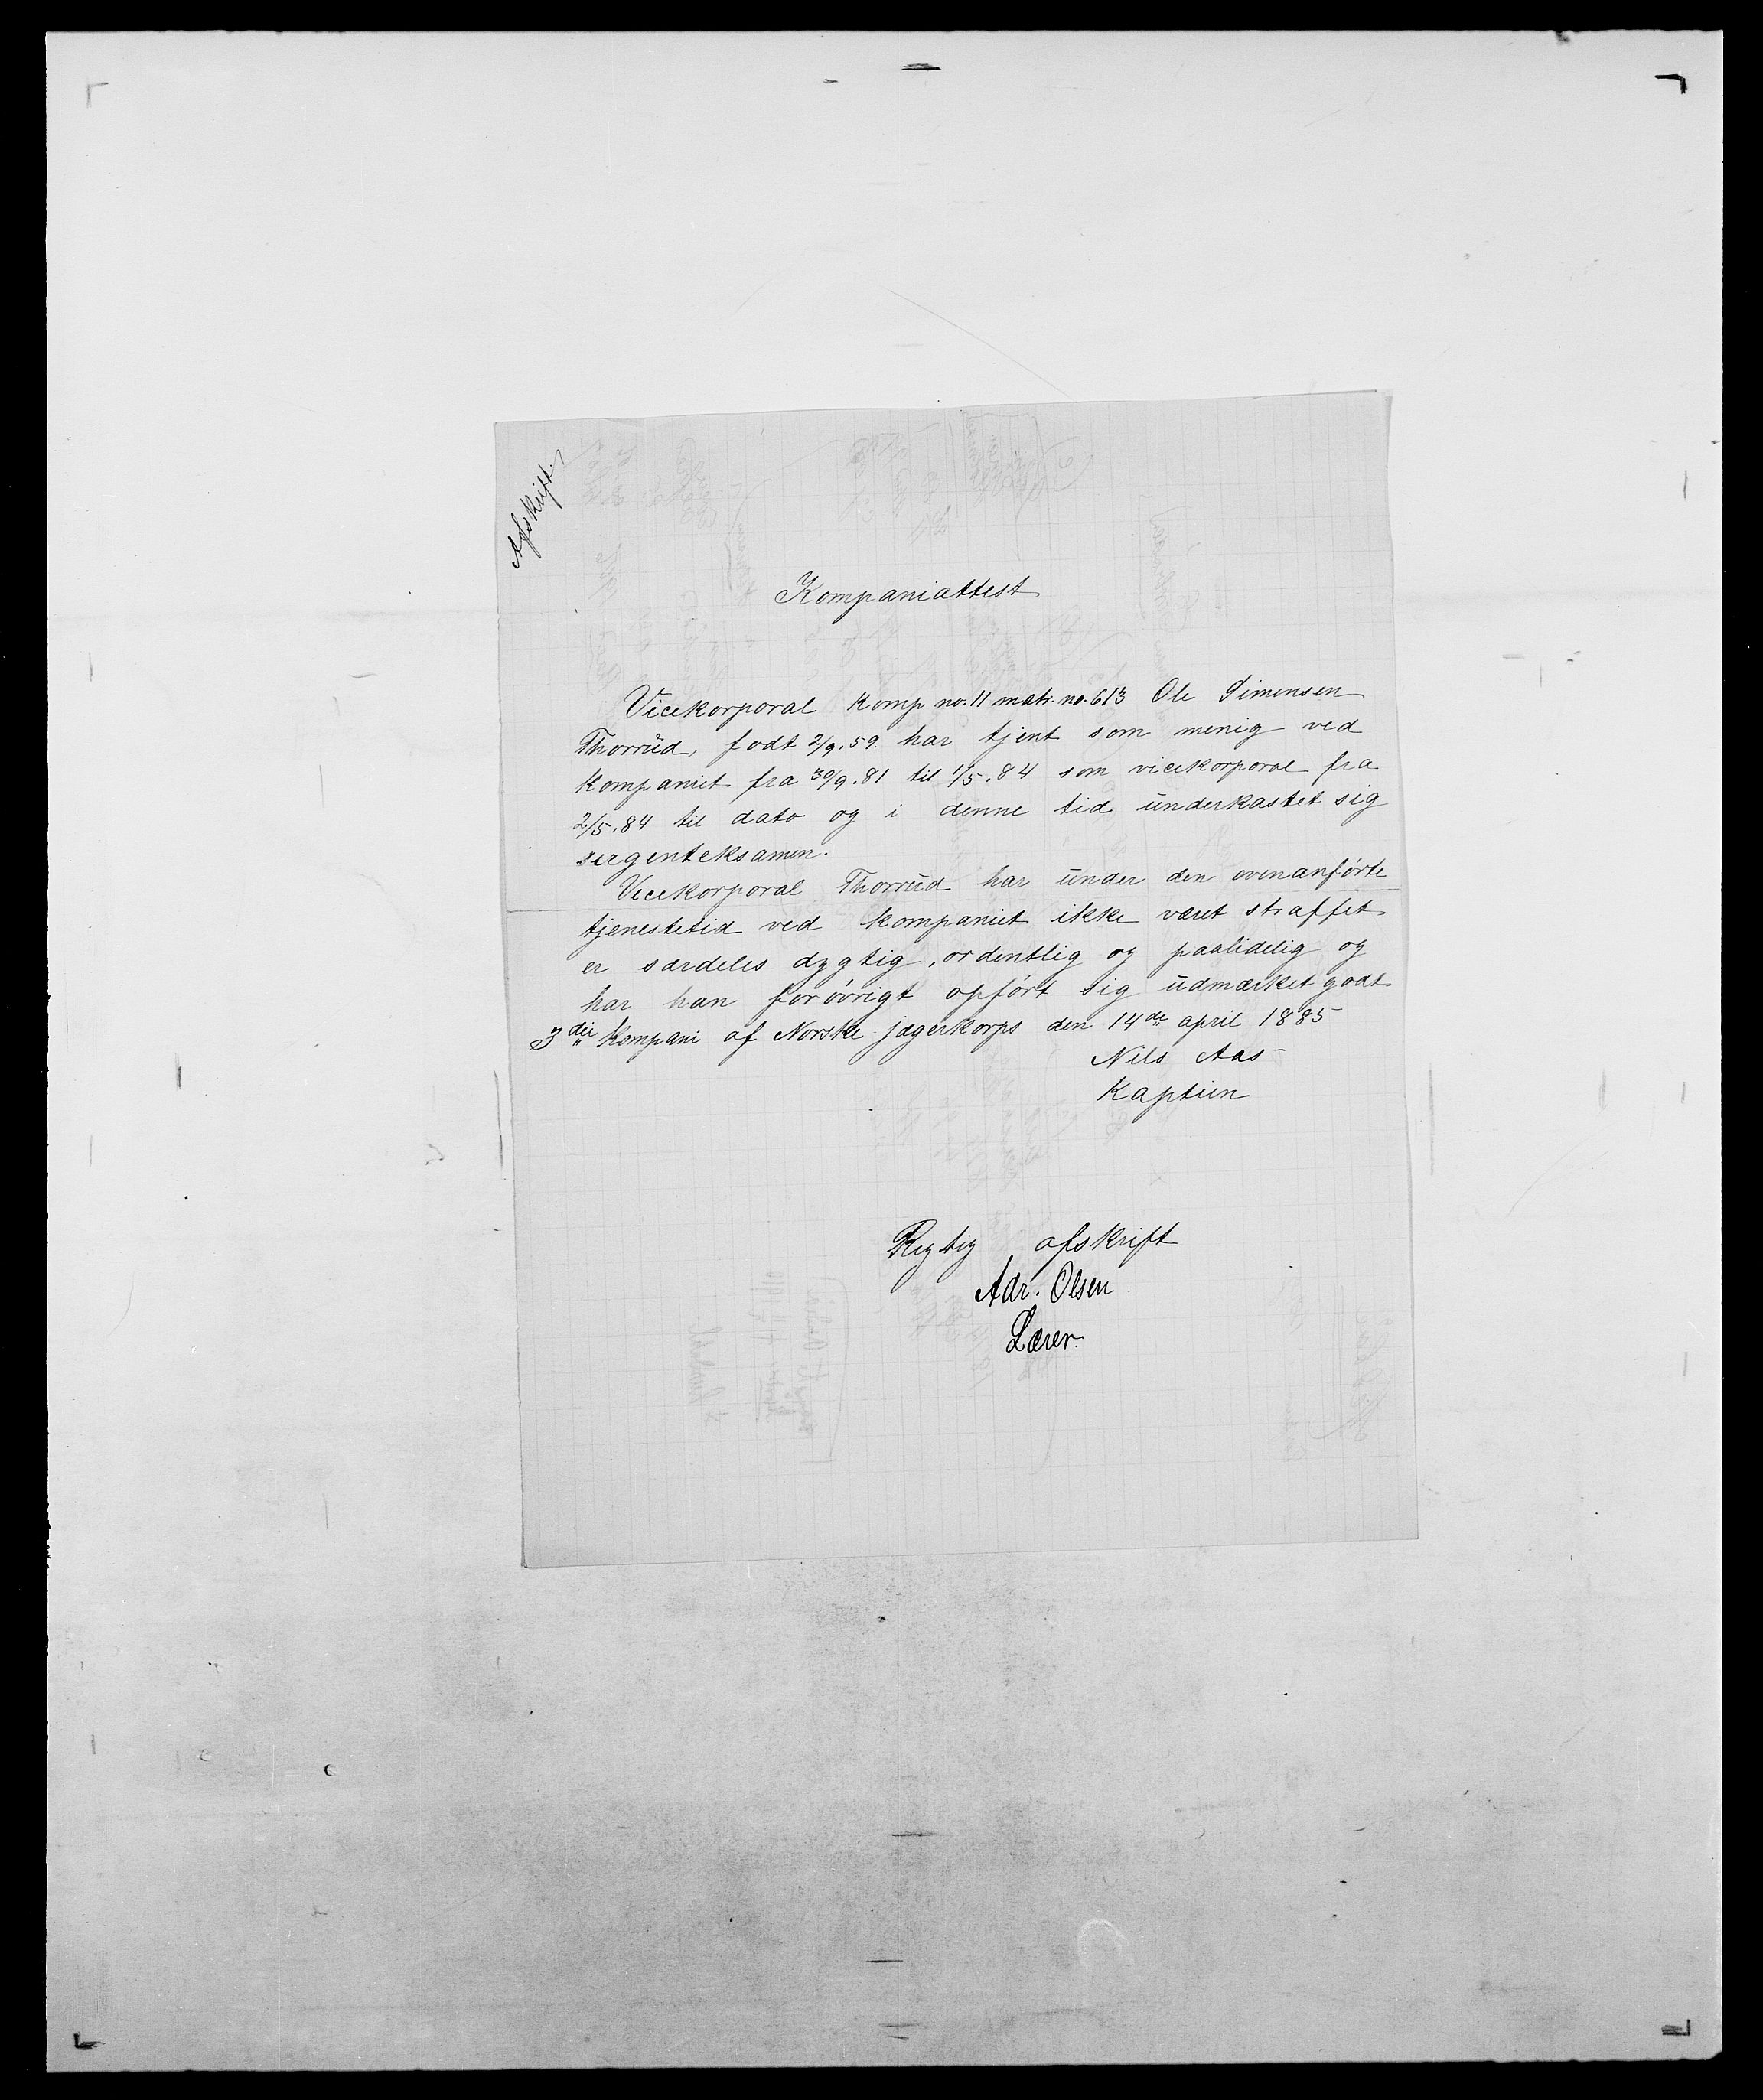 Afskrift.
Kompaniattest
Vicekorporal Komp no. 11 matr. no. 613 Ole Simensen
Thorrud, født 2/9. 59. har tjent som menig ved
kompaniet fra 30/9. 81 til 1/5. 84 som vicekorporal fra
2/5. 84 til dato og i denne tid underkastet sig
sergenteksamen.
Vicekorporal Thorrud har under den ovenanførte
tjenestetid ved kompaniet ikke været straffet
er særdeles dygtig, ordentlig og paalidelig og
har han forøvrigt opført sig udmærket godt.
3die Kompani af Norske jægerkorps den 14de april 1885
Nils Aas
Kaptein
Rigtig afskrift
Adr. Olsen
Lærer.